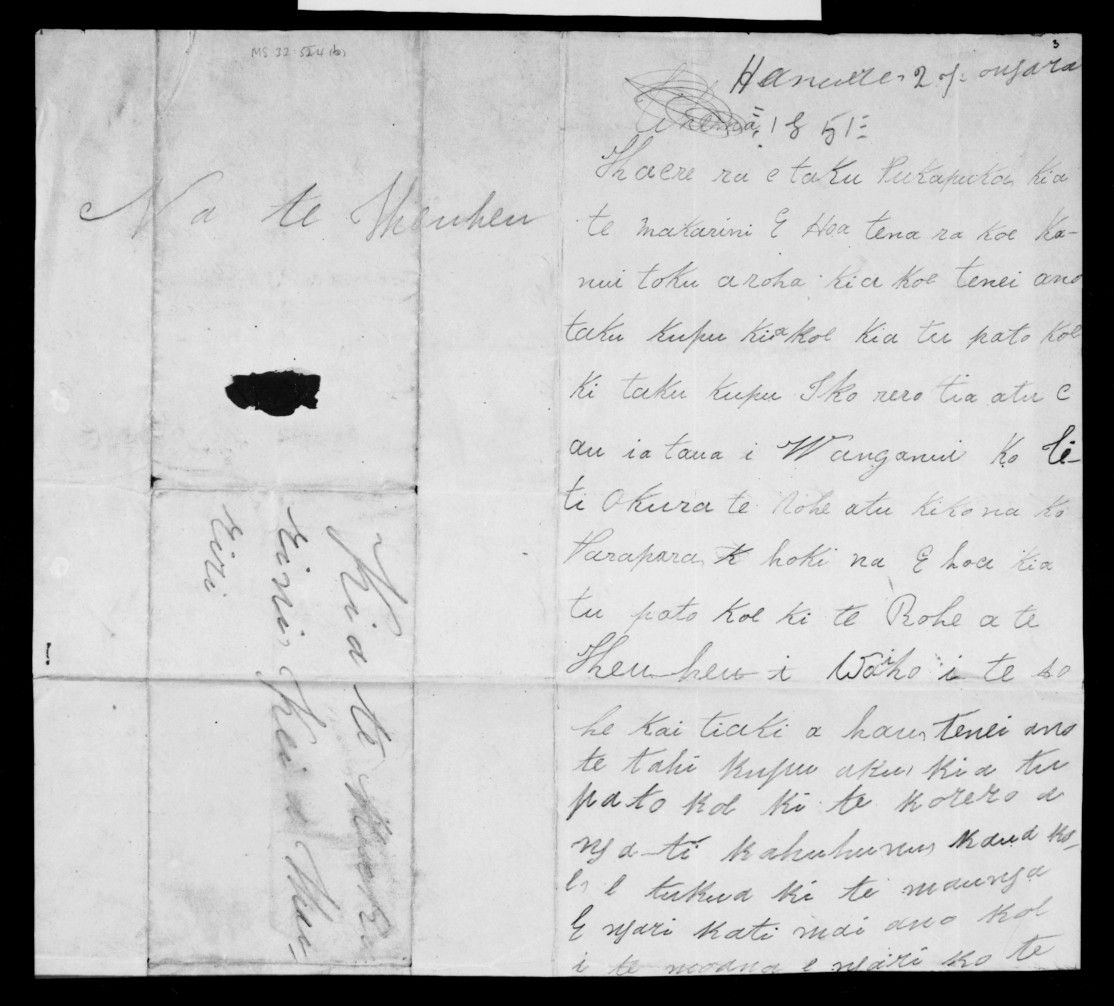 MS 32 524(b)
3
Hanuere, 2 o nga ra
1851
Haere ra e taku Pukapuka, kia
te makarini E Hoa tena ra koe Ka-
nui toku aroha kia koe tenei ano
taku kupu kia koe kia tu pato koe
ki taku kupu I ko rero tia atu e
au ia taua i Wanganui Ko
ti Okura te Rohe atu ki kona ko
Parapara, hoki na E hoa kia
tu pato koe ki te Rohe a te
Heuheu i Waho i te ro
he kai tiaki a hau, tenei ano
te tahi kupu aku, kia tu
pato koe ki te korero a
nga-ti kahuhunu, kaua ko-
e, e tukua ki te maunga
E ngari kati mai ano koe
i te moana e ngari ko te
Na te Heuheu
Kia te
Kei a Hau-
Eiri